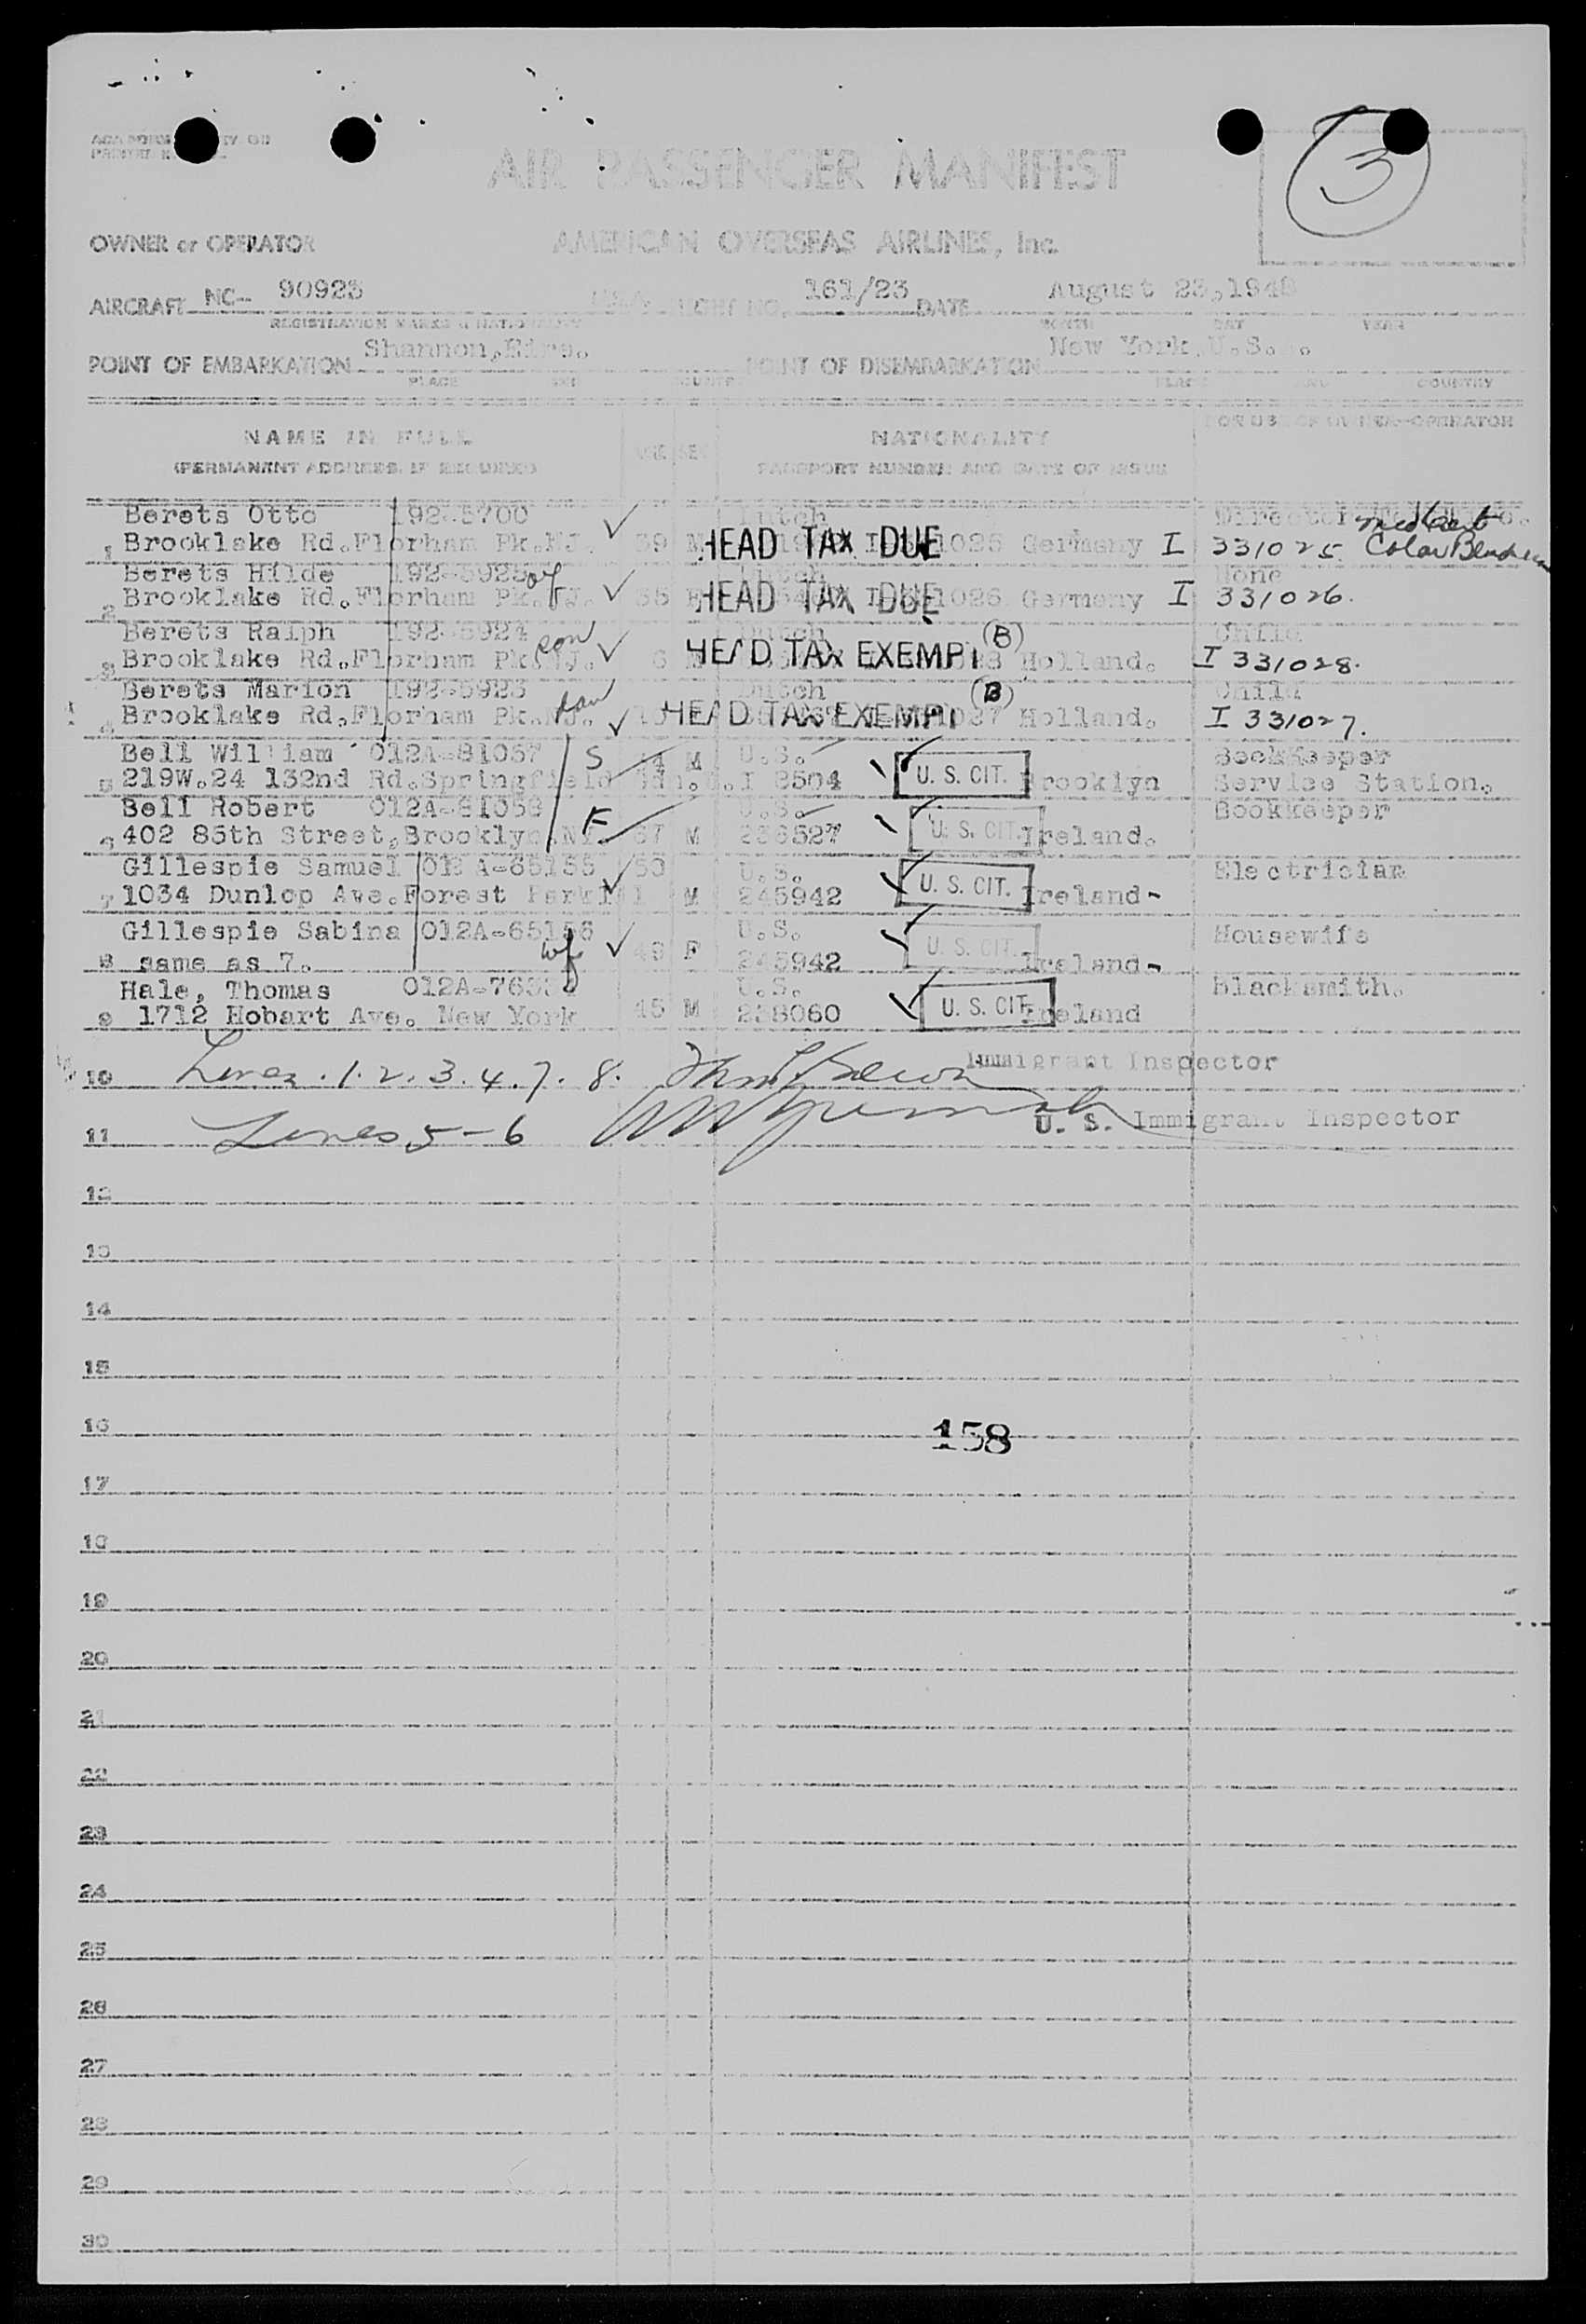 3
AIR PASSENGER MANIFEST
OWNER or OPERATOR AMERICAN OVERSEAS AIRLINES, Inc.
AIRCRAFT NC- 90923 FLIGHT NO. 161/23 DATE August 23,194
REGISTRATION MARKS & NATIONALITY MONTH DAY YEAR
POINT OF EMBARKATION Shannon,Eire. POINT OF DISEMBARKATION New York,U.S.
PLACE COUNTRY PLACE AND COUNTRY
NAME IN FULL AGE SEX NATIONALITY FOR USE OF OWNER-OPERATOR
(PERMANENT ADDRESS, IF REQUIRED) PASSPORT NUMBER AND DATE OF ISSUE
Berets Otto 192-5700 Dutch Director
1 Brooklake Rd.Florham Pk.NJ. 39 M HEAD TAX DUE Germany I 331025
Berets Hilde wf Dutch None
2 Brooklake Rd.Florham Pk.NJ. HEAD TAX DUE Germany I 331026.
Berets Ralph 192-5924 son Dutch (B) Child
3 Brooklake Rd.Florham Pk.NJ. 6 M HEAD TAX EXEMPT Holland. I 331028.
Berets Marion 192-5923 dau Dutch (B) Child
4 Brooklake Rd.Florham Pk.NJ. HEAD TAX EXEMPT Holland. I 331027.
Bell William 012A-81057 S M U.S. Bookkeeper
5 219W.24 132nd Rd.Springfield I 8504 U. S. CIT. Brooklyn Service Station.
Bell Robert 012A-81058 F U.S. Bookkeeper
6 402 85th Street,Brooklyn.NY. 67 M 236527 U. S. CIT. Ireland.
Gillespie Samuel 012 A-65155 50 U.S. Electrician
7 1034 Dunlop Ave.Forest Park M 245942 U. S. CIT. Ireland-
Gillespie Sabina 012A-65156 U.S. Housewife
8 same as 7. wf 49 F 245942 U. S. CIT. Ireland-
Hale, Thomas U.S. Blacksmith.
9 1712 Hobart Ave. New York 45 M 238060 U. S. CIT. Ireland
10 Lines. 1. 2. 3. 4. 7. 8. Immigrant Inspector
11 Lines 5-6 U. S. Immigrant Inspector
12
13
14
15
16 158
17
18
19
20
21
22
23
24
25
26
27
28
29
30